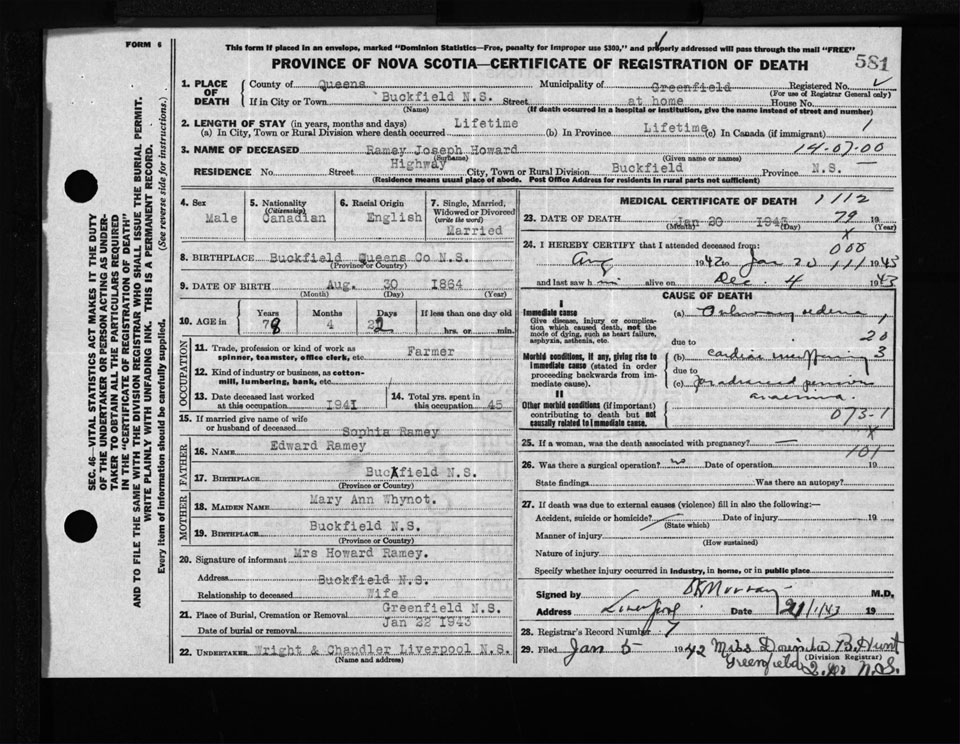 FORM 6
This form if placed in an envelope, marked "Dominion Statistics—Free, penalty for improper use $300," and properly addressed will pass through the mail "FREE"
PROVINCE OF NOVA SCOTIA—CERTIFICATE OF REGISTRATION OF DEATH
581
1. PLACE OF DEATH
County of Queens Municipality of Greenfield Registered No.
(For use of Registrar General only)
If in City or Town Buckfield N.S. Street at home House No.
(Name) (If death occurred in a hospital or institution, give the name instead of street and number)
2. LENGTH OF STAY (in years, months and days) Lifetime Lifetime 1
(a) In City, Town or Rural Division where death occurred (b) In Province (c) In Canada (if immigrant)
3. NAME OF DECEASED Ramey Joseph Howard 14-07-00
(Surname) (Given name or names)
RESIDENCE No. Highway Street City, Town or Rural Division Buckfield Province N.S.
(Residence means usual place of abode. Post Office Address for residents in rural parts not sufficient)
4. Sex
Male
5. Nationality (Citizenship)
Canadian
6. Racial Origin
English
7. Single, Married, Widowed or Divorced (write the word)
Married
8. BIRTHPLACE Buckfield Queens Co N.S.
(Province or Country)
9. DATE OF BIRTH Aug. 30 1864
(Month) (Day) (Year)
10. AGE in Years Months Days If less than one day old
78 4 22 hrs. or min.
OCCUPATION
11. Trade, profession or kind of work as spinner, teamster, office clerk, etc. Farmer
12. Kind of industry or business, as cotton-mill, lumbering, bank, etc.
13. Date deceased last worked at this occupation 1941
14. Total yrs. spent in this occupation 45
15. If married give name of wife or husband of deceased Sophia Ramey
FATHER
16. NAME Edward Ramey
17. BIRTHPLACE Buckfield N.S.
(Province or Country)
MOTHER
18. MAIDEN NAME Mary Ann Whynot.
19. BIRTHPLACE Buckfield N.S.
(Province or Country)
20. Signature of informant Mrs Howard Ramey.
Address Buckfield N.S.
Relationship to deceased Wife
21. Place of Burial, Cremation or Removal Greenfield N.S.
Date of burial or removal Jan 22 1943
22. UNDERTAKER Wright & Chandler Liverpool N.S.
(Name and address)
MEDICAL CERTIFICATE OF DEATH 1112
23. DATE OF DEATH Jan 20 1943 79 19
(Month) (Day) (Year)
x
24. I HEREBY CERTIFY that I attended deceased from: 000
Aug 1942 to Jan 20 111 1943
and last saw h im alive on Dec. 4 1943
CAUSE OF DEATH
I
Immediate cause
Give disease, injury or complication which caused death, not the mode of dying, such as heart failure, asphyxia, asthenia, etc.
(a) Pulmonary edema 1
due to 20
Morbid conditions, if any, giving rise to immediate cause (stated in order proceeding backwards from immediate cause).
(b) cardiac 3
due to
(c) anaemia
II
Other morbid conditions (if important) contributing to death but not causally related to immediate cause.
073-1
x
25. If a woman, was the death associated with pregnancy? — 101
26. Was there a surgical operation? no Date of operation 19
State findings Was there an autopsy?
27. If death was due to external causes (violence) fill in also the following:—
Accident, suicide or homicide? Date of injury 19
(State which)
Manner of injury
(How sustained)
Nature of injury
Specify whether injury occurred in industry, in home, or in public place
Signed by Murray M.D.
Address Liverpool Date 21/1/43 19
28. Registrar's Record Number 7
29. Filed Jan 5 1942 Miss B. Hunt
(Division Registrar)
Greenfield Q. Co N.S.
SEC. 46—VITAL STATISTICS ACT MAKES IT THE DUTY
OF THE UNDERTAKER OR PERSON ACTING AS UNDER-
TAKER TO OBTAIN ALL THE PARTICULARS REQUIRED
IN THE "CERTIFICATE OF REGISTRATION OF DEATH"
AND TO FILE THE SAME WITH THE DIVISION REGISTRAR WHO SHALL ISSUE THE BURIAL PERMIT.
WRITE PLAINLY WITH UNFADING INK. THIS IS A PERMANENT RECORD.
Every item of information should be carefully supplied. (See reverse side for instructions.)